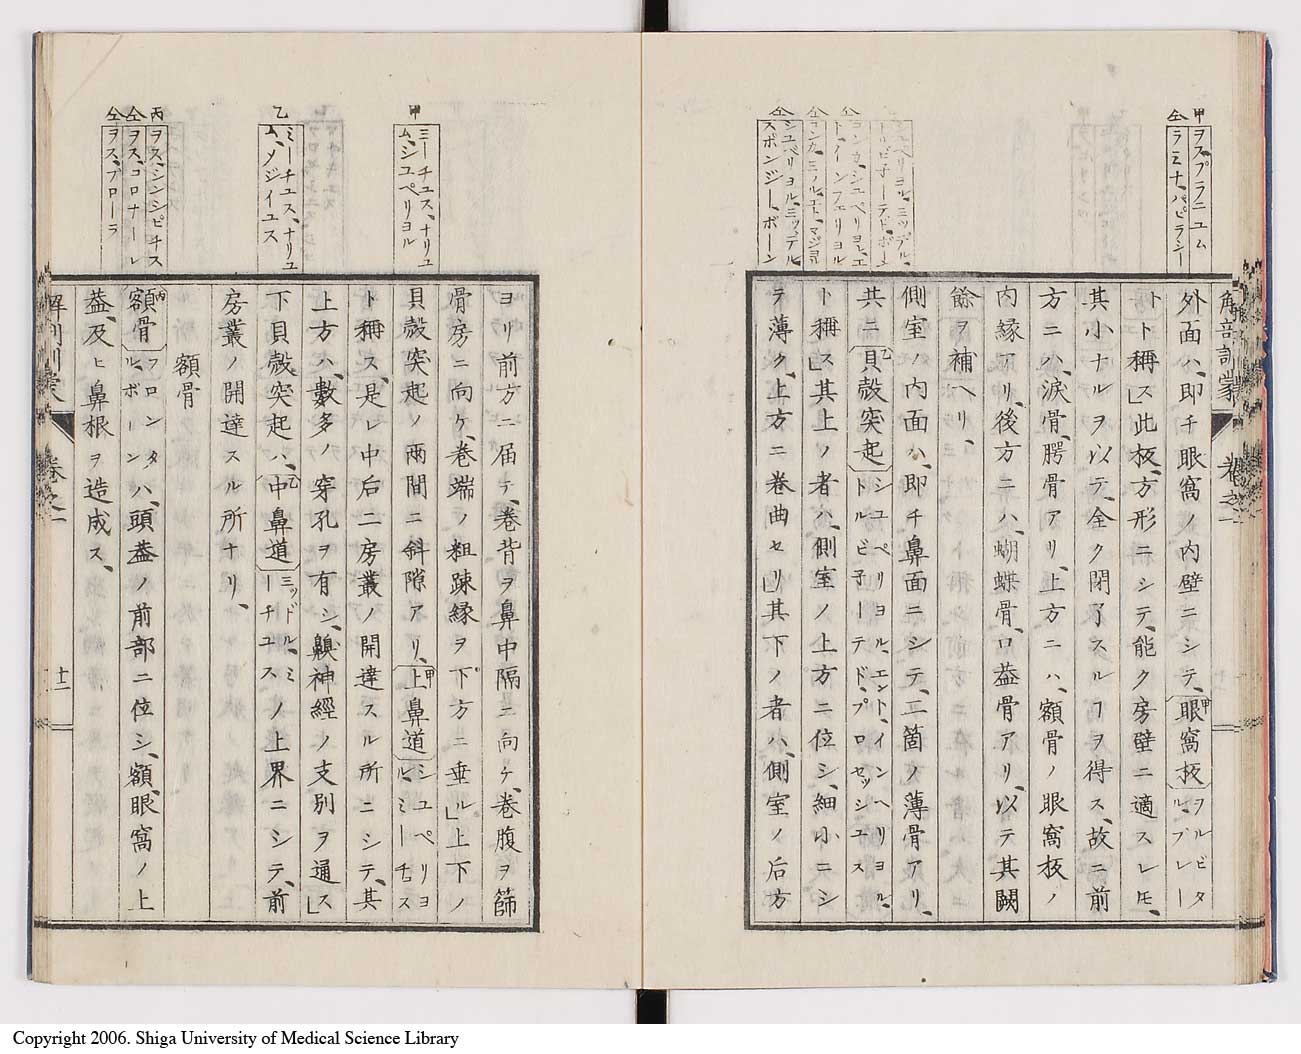 甲 ヲスプラニユム
仝 ラミナ、パピラシー
仝 シユペリヨル、ミッデル、
スポンジー、ボーン
解剖訓蒙 卷之一
外面ハ、即チ眼窩ノ内壁ニシテ、眼窩板 甲 ヲルビタル、プレート
ト稱ス」此板、方形ニシテ、能ク房壁ニ適スレモ、
其小ナルヲ以テ、全ク閉了スルヿヲ得ス、故ニ前
方ニハ、淚骨、腭骨アリ、上方ニハ、額骨ノ眼窩板ノ
内縁アリ、後方ニハ、蝴蝶骨、口葢骨アリ、以テ其闕
餘ヲ補ヘリ、
側室ノ内面ハ、即チ鼻面ニシテ、二箇ノ薄骨アリ、
共ニ貝殼突起 乙 シユペリヨル、エント、インヘリヨル、トルビ子ーテド、プロセッシユス
ト稱ス」其上ノ者ハ、側室ノ上方ニ位シ、細小ニシ
テ薄ク、上方ニ卷曲セリ」其下ノ者ハ、側室ノ后方
甲 ミーチユス、ナリユ
ム、シユペリヨル
乙 ミーチユス、ナリユ
ム、メジイユス
丙 ヲス、シンシピチス
仝 ヲス、コロナーレ
仝 ヲス、プローラ
ヨリ前方ニ届テ、卷背ヲ鼻中隔ニ向ケ、卷腹ヲ篩
骨房ニ向ケ、卷端ノ粗踈縁ヲ下方ニ垂ル」上下ノ
貝殼突起ノ両間ニ斜隙アリ、上鼻道 甲 シユペリヨル、ミーチユス
ト稱ス、是レ中后二房叢ノ開達スル所ニシテ、其
上方ハ、數多ノ穿孔ヲ有シ、齅神經ノ支別ヲ通ス」
下貝殼突起ハ、中鼻道 乙 ミッドル、ミーチユス ノ上界ニシテ、前
房叢ノ開達スル所ナリ、
額骨
額骨 丙 フロンタル、ボーン ハ、頭葢ノ前部ニ位シ、額、眼窩ノ上
葢、及ヒ鼻根ヲ造成ス、
解剖訓蒙 卷之一 十二
Copyright 2006. Shiga University of Medical Science Library